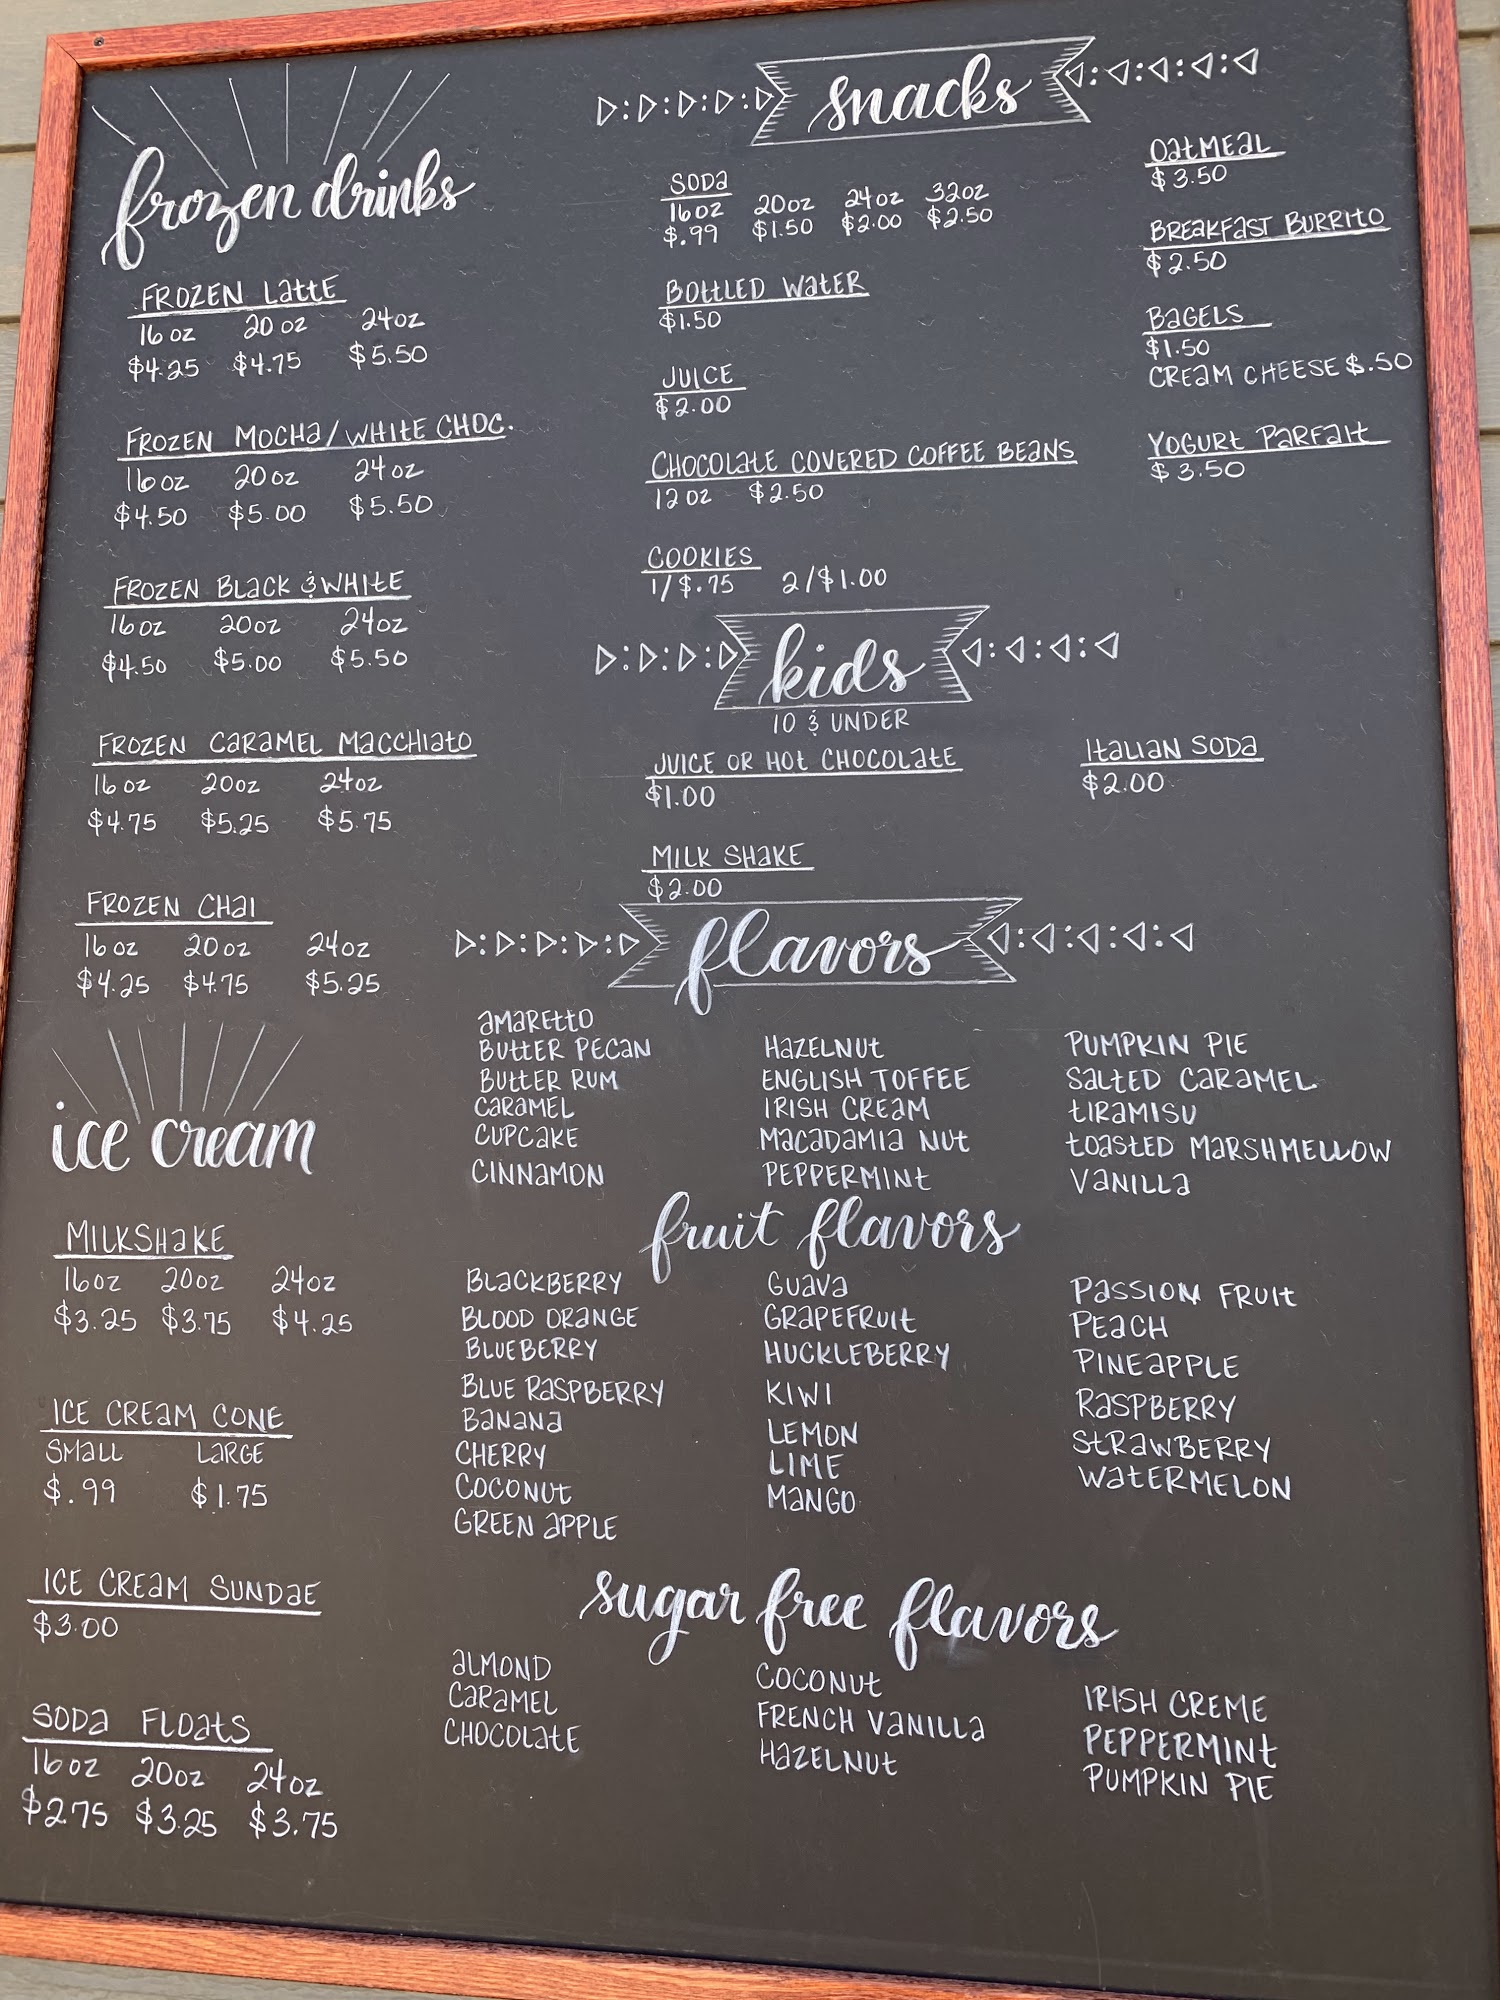 frozen drinks
FROZEN LattE
16 oz 20 oz 24oz
$4.25 $4.75 $5.50
FROZEN MOCHa/WHITE CHOC.
16 oz 20 oz 24 oz
$4.50 $5.00 $5.50
FROZEN BLaCK & WHItE
16 oz 20oz 24oz
$4.50 $5.00 $5.50
FROZEN CaRaMEL MaCCHIatO
16 oz 20oz 24oz
$4.75 $5.25 $5.75
FROZEN CHaI
16 oz 20 oz 24oz
$4.25 $4.75 $5.25
ice cream
MILKSHaKE
16oz 20oz 24oz
$3.25 $3.75 $4.25
ICE CREaM CONE
SMaLL LaRGE
$.99 $1.75
ICE CREaM SUNDaE
$3.00
SODa FLOatS
16oz 20oz 24oz
$2.75 $3.25 $3.75
snacks
SODa
16oz 20oz 24oz 32oz
$.99 $1.50 $2.00 $2.50
BOttLED WatER
$1.50
JUICE
$2.00
CHOCOLatE COVERED COFFEE BEaNS
12 oz $2.50
COOKIES
1/$.75 2/$1.00
OatMEaL
$3.50
BREaKFaSt BURRItO
$2.50
BaGELS
$1.50
CREaM CHEESE $.50
YOGURt PaRFaIt
$3.50
kids
10 & UNDER
JUICE OR HOt CHOCOLatE
$1.00
MILK SHaKE
$2.00
ItaLIaN SODa
$2.00
flavors
aMaREttO
BUttER PECaN
BUttER RUM
CaRaMEL
CUPCaKE
CINNaMON
HaZELNUt
ENGLISH TOFFEE
IRISH CREaM
MaCaDaMIa NUt
PEPPERMINt
PUMPKIN PIE
SaLtED CaRaMEL
tIRaMISU
tOaStED MaRSHMELLOW
VaNILLa
fruit flavors
BLaCKBERRY
BLOOD ORaNGE
BLUEBERRY
BLUE RaSPBERRY
BaNaNa
CHERRY
COCONUt
GREEN aPPLE
GUaVa
GRaPEFRUIt
HUCKLEBERRY
KIWI
LEMON
LIME
MaNGO
PaSSION FRUIt
PEaCH
PINEaPPLE
RaSPBERRY
StRaWBERRY
WatERMELON
sugar free flavors
aLMOND
CaRaMEL
CHOCOLatE
COCONUt
FRENCH VaNILLa
HaZELNUt
IRISH CREME
PEPPERMINt
PUMPKIN PIE